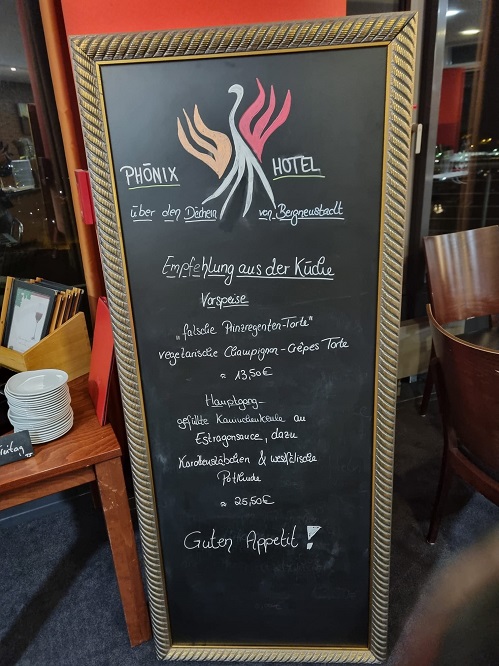 PHÖNIX HOTEL
über den Dächern von Bergneustadt
Empfehlung aus der Küche
Vorspeise
„falsche Prinzregenten-Torte"
vegetarische Champignon-Crêpes Torte
= 13,50€
Hauptgang
gefüllte Kaninchenkeule an
Estragonsauce, dazu
Karottenstäbchen & westfälische
= 25,50€
Guten Appetit!